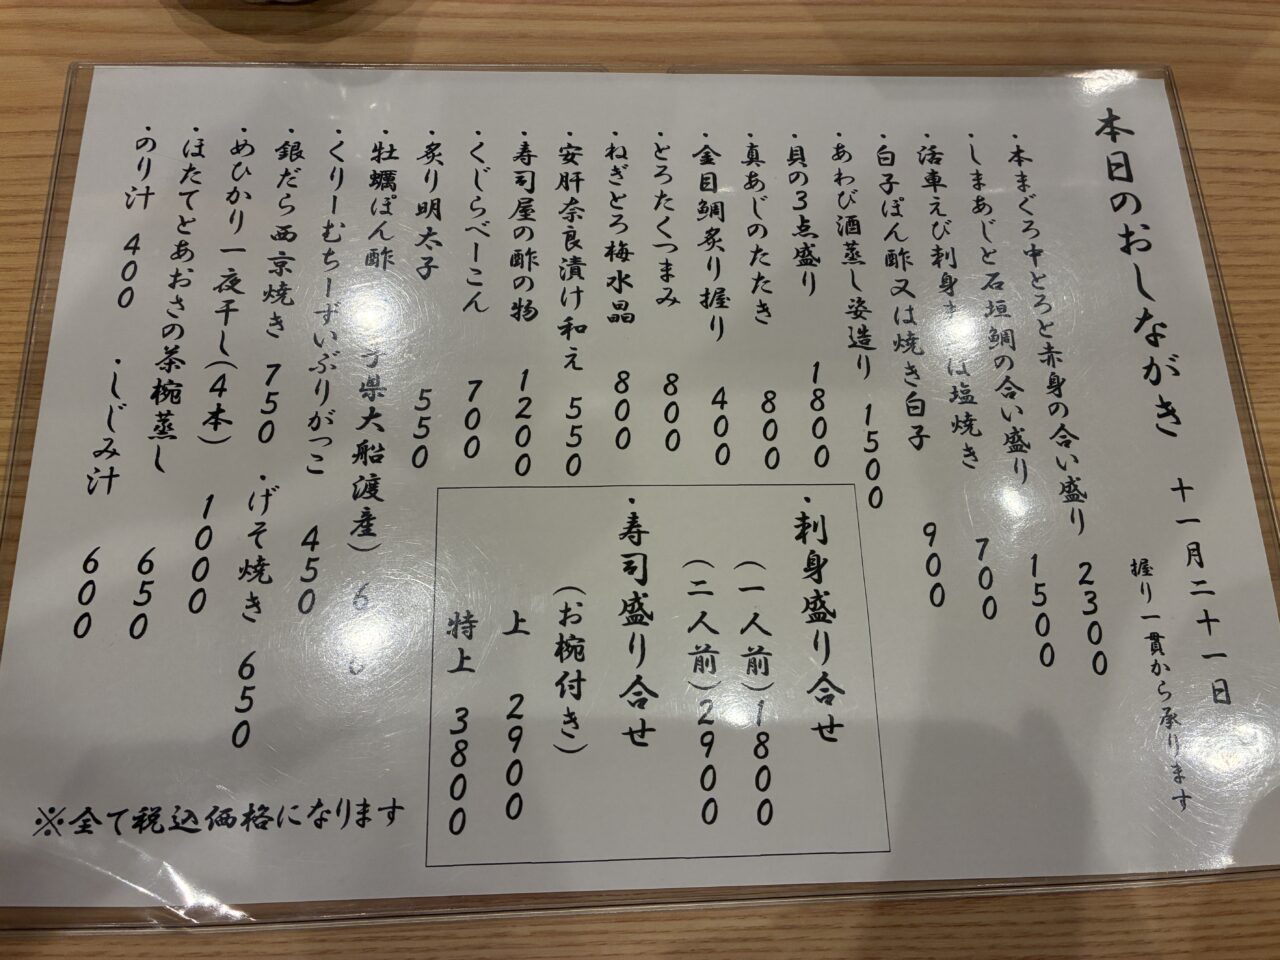 本日のおしながき 十一月二十一日
握り一貫から承ります
・本まぐろ中とろと赤身の合い盛り 2300
・しまあじと石垣鯛の合い盛り 1500
・活車えび刺身 は塩焼き 700
・白子ぽん酢又は焼き白子 900
・あわび酒蒸し姿造り 1500
・貝の3点盛り 1800
・真あじのたたき 800
・金目鯛炙り握り 400
・とろたくつまみ 800
・ねぎとろ梅水晶 800
・安肝奈良漬け和え 550
・寿司屋の酢の物 1200
・くじらべーこん 700
・炙り明太子 550
・牡蠣ぽん酢 県大船渡産)
・くりーむちーずいぶりがっこ 450
・銀だら西京焼き 750 ・げそ焼き 650
・めひかり一夜干し(4本) 1000
・ほたてとあおさの茶椀蒸し 650
・のり汁 400 ・しじみ汁 600
・刺身盛り合せ
(一人前)1800
(二人前)2900
・寿司盛り合せ
(お椀付き)
上 2900
特上 3800
※全て税込価格になります